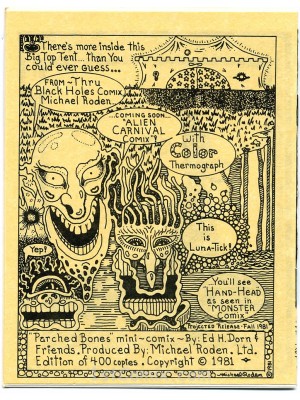 There's more inside this
Big Top Tent... Than You
could ever guess...
FROM-Thru
Black Holes Comix
Michael Roden.
...COMING SOON...
"ALIEN
CARNIVAL
COMIX"
With
Color
Thermograph
Yep?
This
is
Luna-Tick!
You'll see
"HAND-HEAD"
as seen in
MONSTER
Comix
PROJECTED RELEASE-Fall 1981
"Parched Bones" mini-comix ~ By: Ed H. Dorn &
Friends. Produced By: Michael Roden. Ltd.
Edition of 400 copies. Copyright © 1981
Michael Roden
©1981